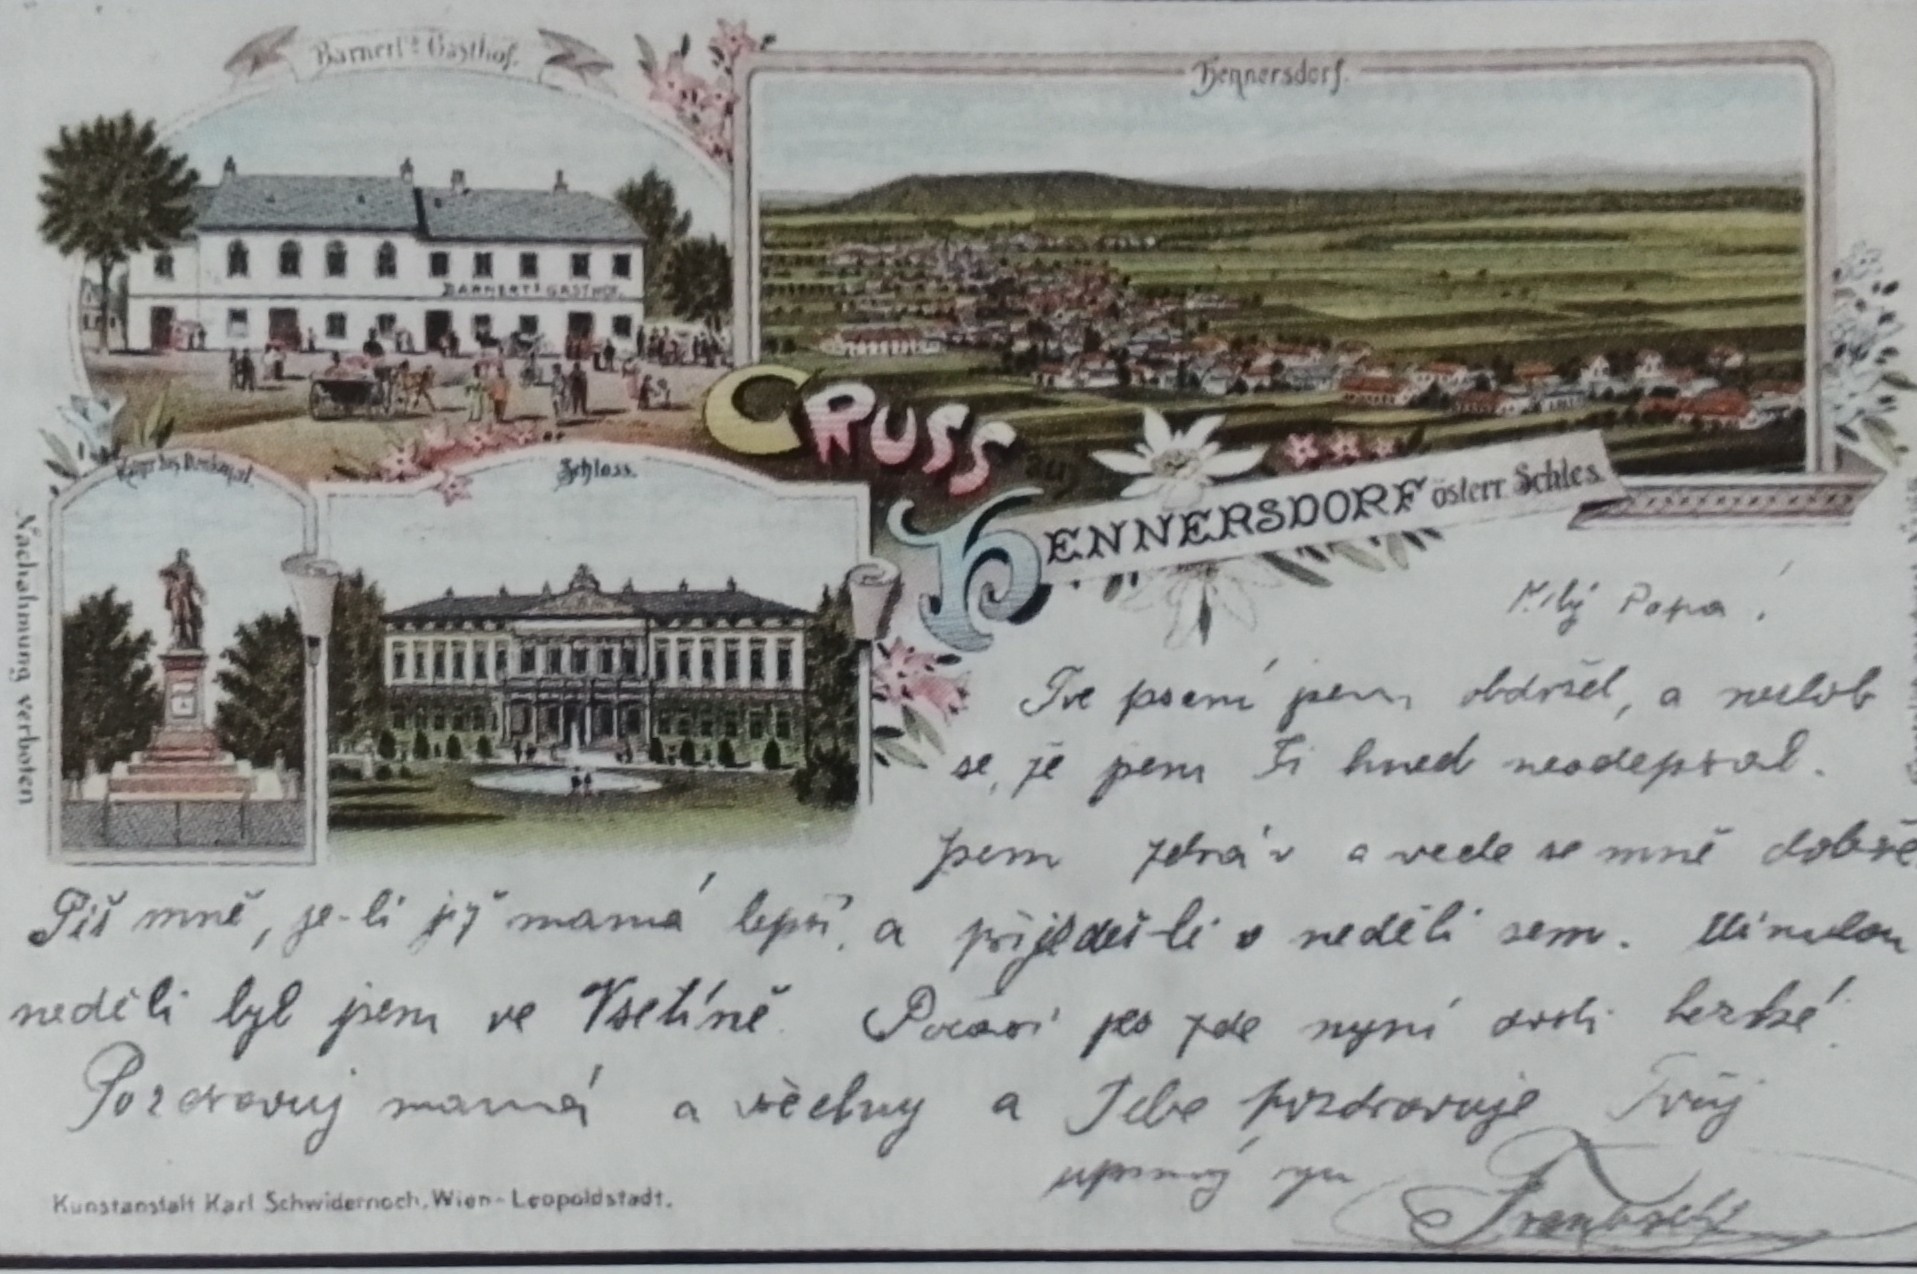 Barnert's Gasthof.
Hennersdorf.
BARNERT'S GASTHOF.
GRUSS
zu
HENNERSDORF österr. Schles.
Denkmal.
Schloss.
Nachahmung verboten
Milý Papa!
Tvé psaní jsem obdržel, a nezlob
se, že jsem Ti hned neodepsal.
Jsem zdráv a vede se mně dobře
Piš mně, je-li již mamá lepší, a přijedeš-li v neděli sem. Minulou
neděli byl jsem ve Vsetíně. Počasí jes zde nyní dosti hezké.
Pozdravuj mamá a všechny a Tebe pozdravuje Tvůj
upřímný syn
František
Kunstanstalt Karl Schwidernoch, Wien-Leopoldstadt.